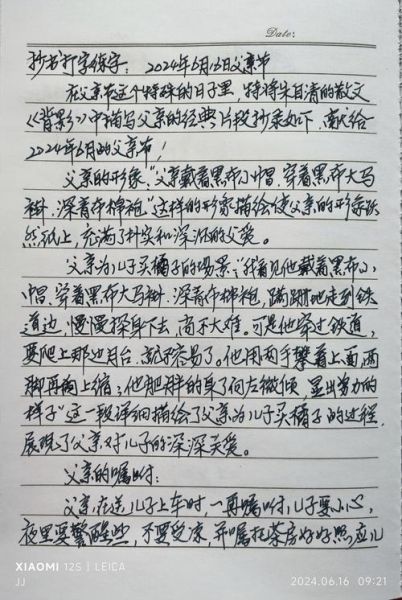 Date:
抄书打字练字: 2024年6月16日父亲节
在父亲节这个特殊的日子里，特将朱自清的散文
《背影》中描写父亲的经典片段抄录如下，献给
2024年6月的父亲节！
父亲的形象："父亲戴着黑布小帽，穿着黑布大马
褂，深青布棉袍"这样的形象描绘使父亲的形象跃
然纸上，充满了朴实和深沉的父爱。
父亲为儿子买橘子的场景："我看见他戴着黑布小
帽，穿着黑布大马褂，深青布棉袍，蹒跚地走到铁
道边，慢慢探身下去，尚不大难。可是他穿过铁道，
要爬上那边月台，就不容易了。他用两手攀着上面，两
脚再向上缩；他肥胖的身子向左微倾，显出努力的
样子"这一段详细描绘了父亲为儿子买橘子的过程，
展现了父亲对儿子的深深关爱。
父亲的嘱咐：
父亲在送儿子上车时，一再嘱咐儿子要小心，
夜里要警醒些，不要受凉，并嘱托茶房好好照应儿
XIAOMI 12S | LEICA
JJ
2024.06.16 09:21